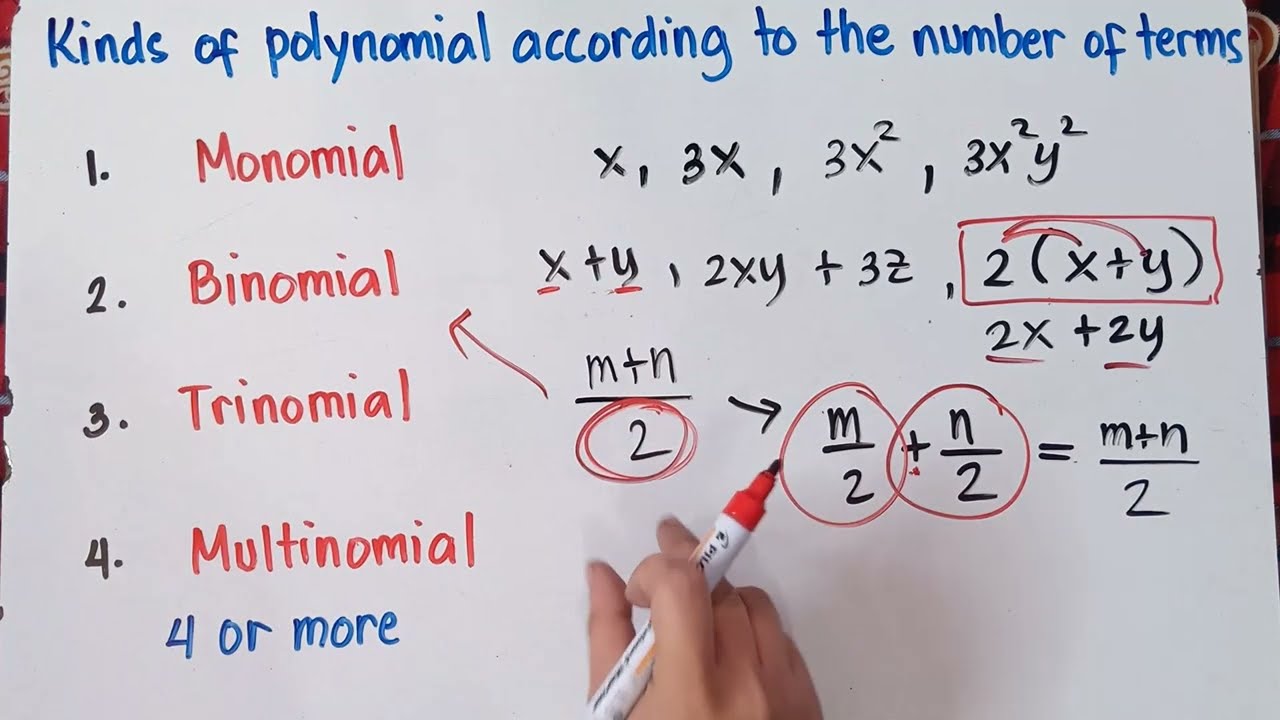 Kinds of polynomial according to the number of terms
1. Monomial x, 3x, 3x², 3x²y²
2. Binomial x+y, 2xy + 3z, 2(x+y)
2x + 2y
m+n/2 → m/2 + n/2 = m+n/2
3. Trinomial
4. Multinomial
4 or more